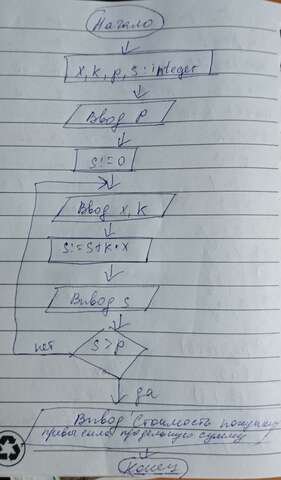 Начало
x, k, p, s : integer
Ввод p
s:=0
Ввод x, k
s:=s+k*x
Вывод s
s>p
нет
да
Вывод 'Стоимость покупки
превысила предельную сумму
Конец